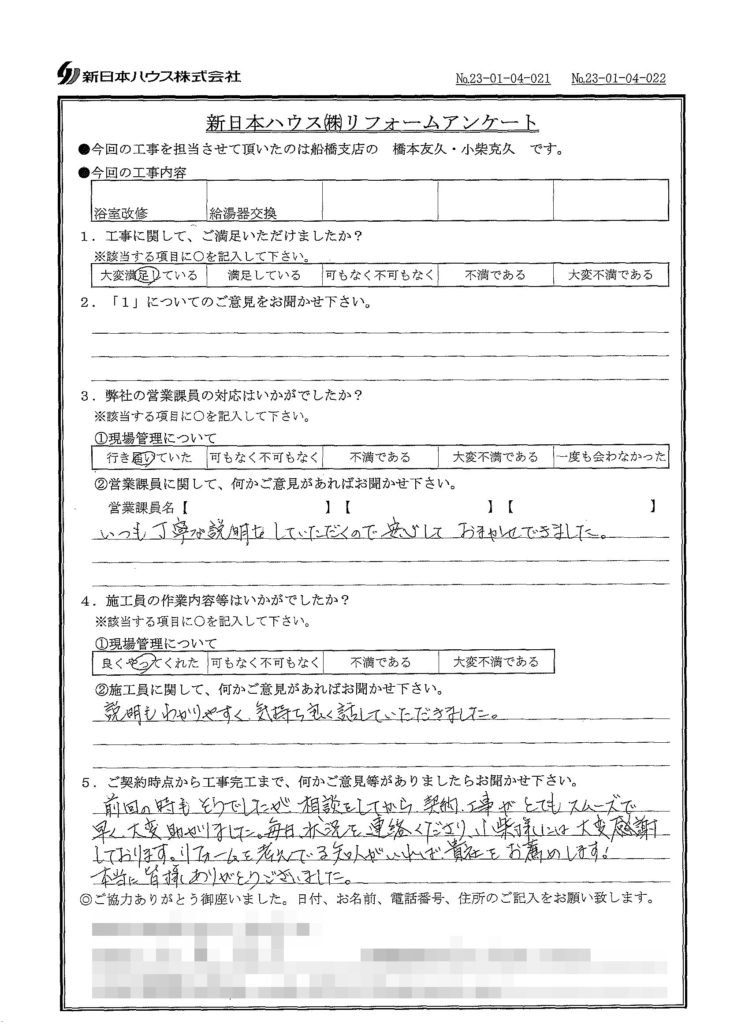 新日本ハウス株式会社
No.23-01-04-021 No.23-01-04-022
新日本ハウス㈱リフォームアンケート
●今回の工事を担当させて頂いたのは船橋支店の 橋本友久・小柴克久 です。
●今回の工事内容
浴室改修 給湯器交換
1．工事に関して、ご満足いただけましたか？
※該当する項目に○を記入して下さい。
大変満足している 満足している 可もなく不可もなく 不満である 大変不満である
2．「1」についてのご意見をお聞かせ下さい。
3．弊社の営業課員の対応はいかがでしたか？
※該当する項目に○を記入して下さい。
①現場管理について
行き届いていた 可もなく不可もなく 不満である 大変不満である 一度も会わなかった
②営業課員に関して、何かご意見があればお聞かせ下さい。
営業課員名【 】【 】【 】
いつも丁寧な説明をしていただくので安心して おまかせできました。
4．施工員の作業内容等はいかがでしたか？
※該当する項目に○を記入して下さい。
①現場管理について
良くやってくれた 可もなく不可もなく 不満である 大変不満である
②施工員に関して、何かご意見があればお聞かせ下さい。
説明もわかりやすく、気持ち良く話していただきました。
5．ご契約時点から工事完工まで、何かご意見等がありましたらお聞かせ下さい。
前回の時もそうでしたが 相談をしてから、契約、工事がとてもスムーズで
早く、大変助かりました。毎日、状況を連絡くださり、小柴様には大変感謝
しております。リフォームを考えている知人がいれば貴社をお薦めします！
本当に皆様ありがとうございました。
◎ご協力ありがとう御座いました。日付、お名前、電話番号、住所のご記入をお願い致します。